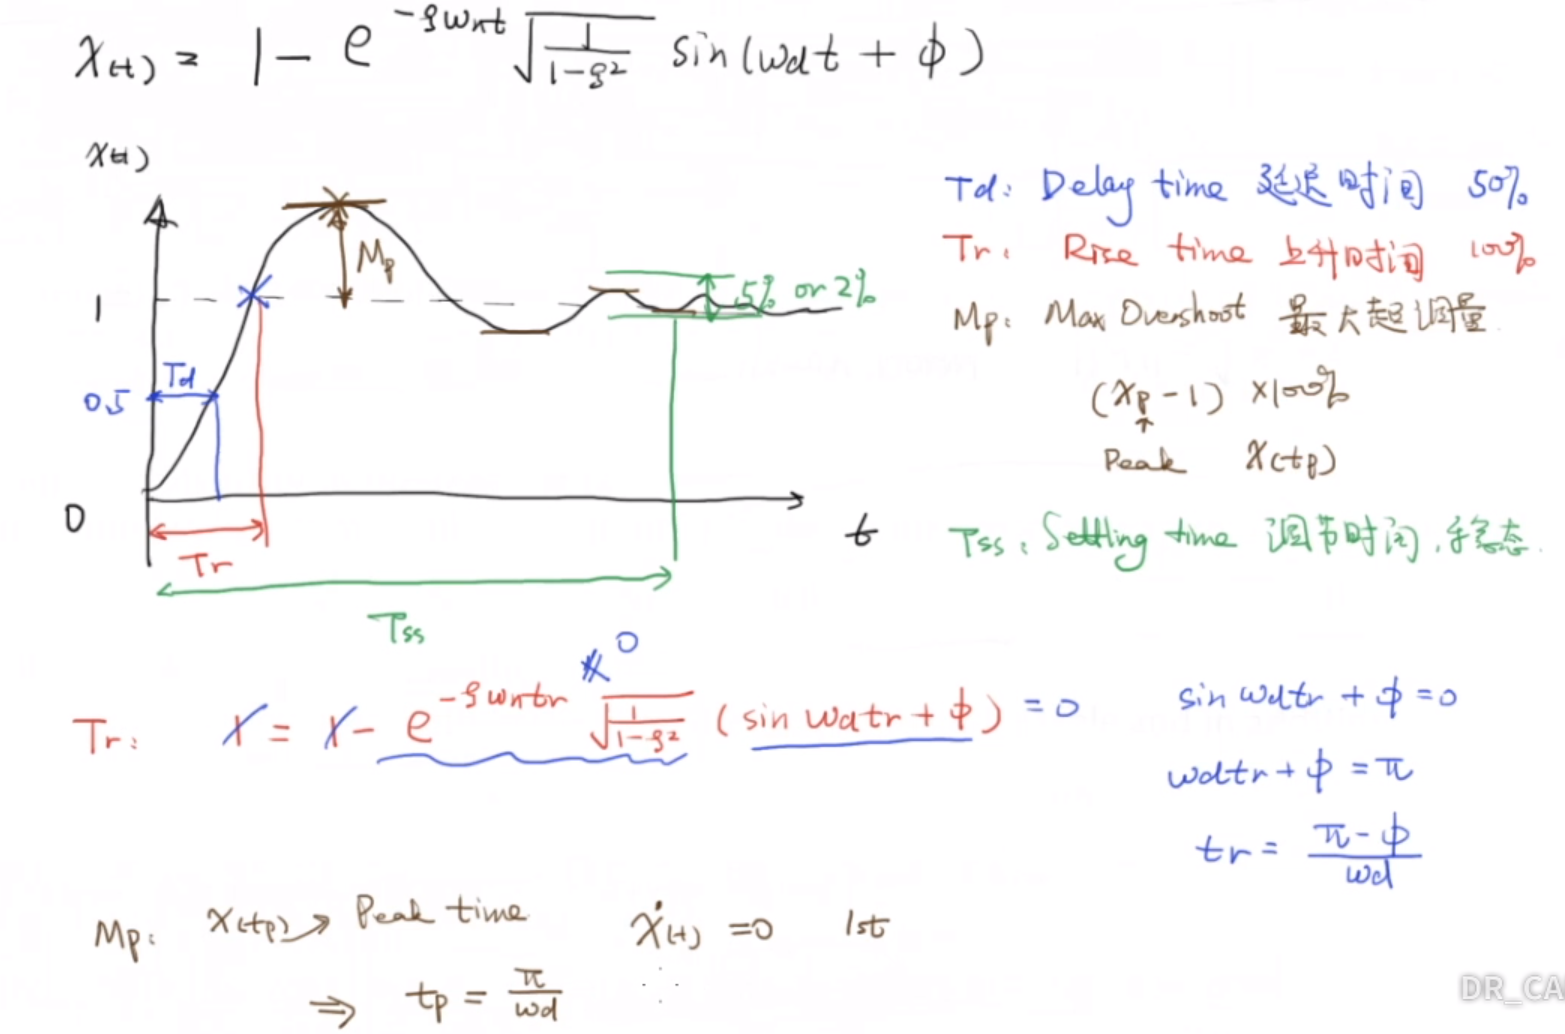 X(t) = 1 - e^{-ξωnt} √(1/(1-ξ²)) sin(ωdt + φ)
X(t)
Mp
5% or 2%
1
Td
0.5
0
Tr
t
Tss
Td: Delay time 延迟时间 50%
Tr: Rise time 上升时间 100%
Mp: Max Overshoot 最大超调量
(Xp - 1) × 100%
↑
Peak X(tp)
Tss: Settling time 调节时间, 稳态.
Tr: 1 = 1 - e^{-ξωntr} √(1/(1-ξ²)) (sin ωdtr + φ) = 0
≠ 0
sin ωdtr + φ = 0
ωdtr + φ = π
tr = (π - φ)/ωd
Mp: X(tp) → Peak time ẋ(t) = 0 1st
⇒ tp = π/ωd
DR_CA